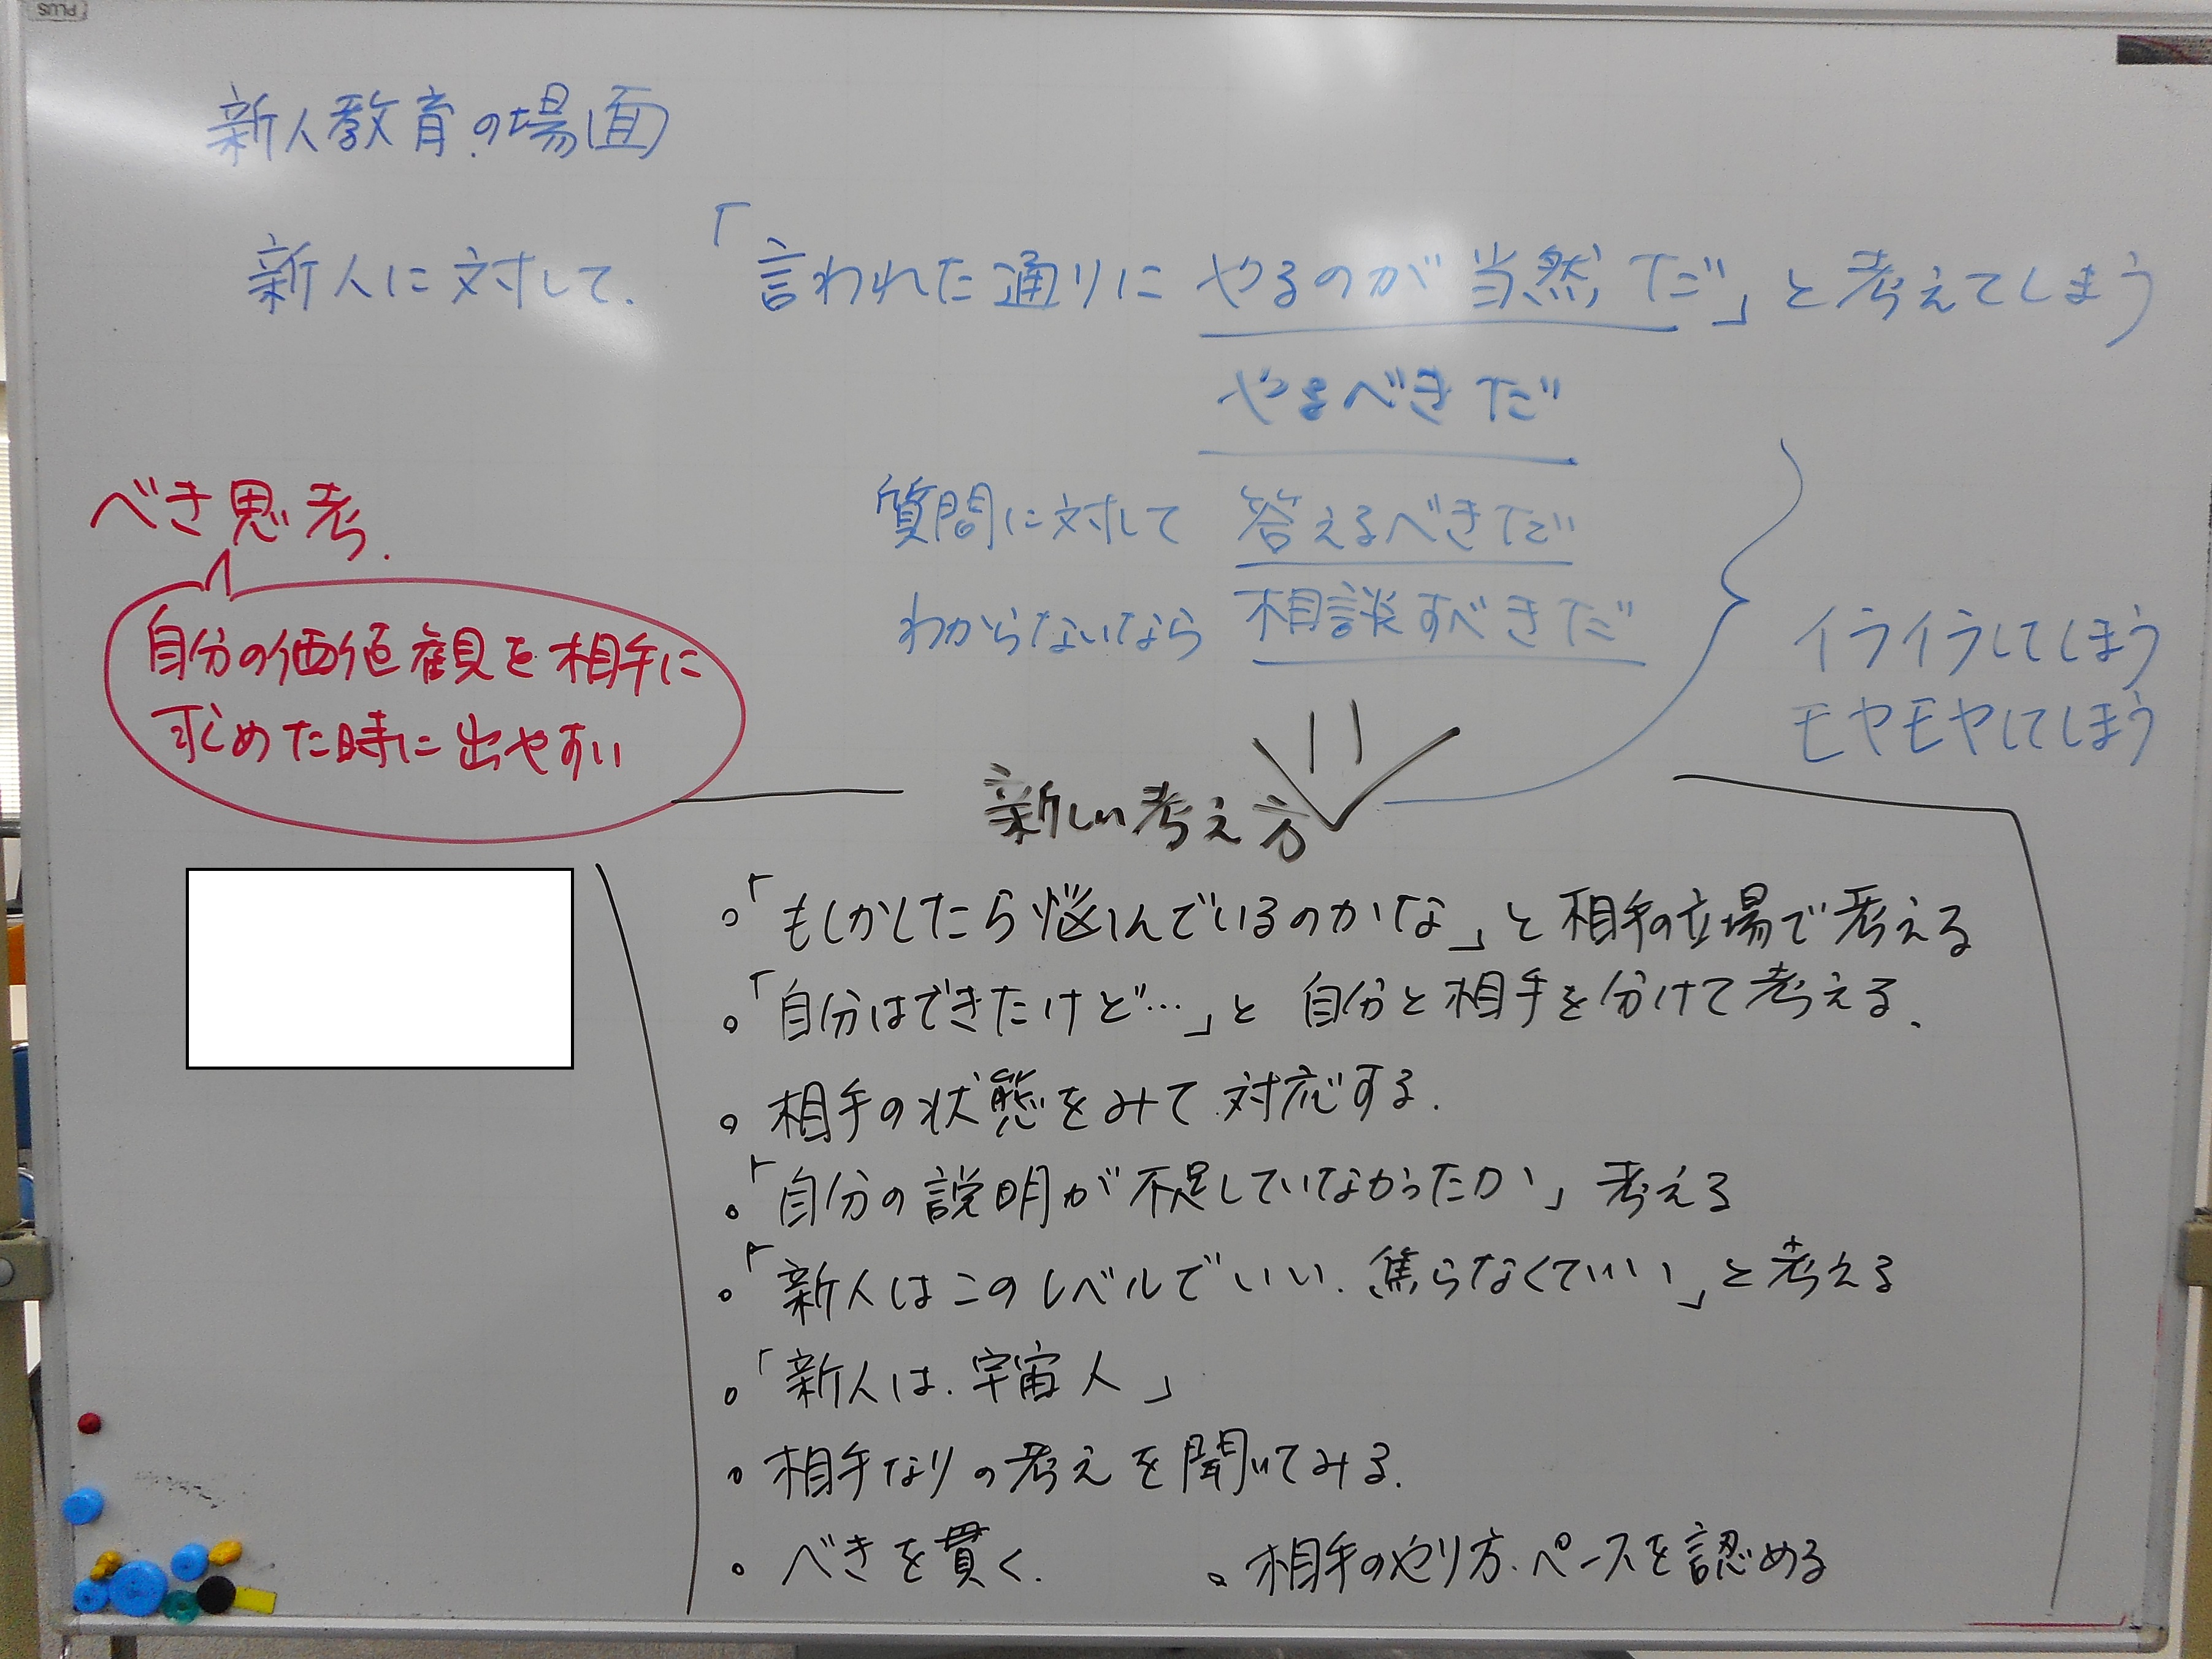 PLUS
新人教育の場面
新人に対して、「言われた通りにやるのが当然だ」と考えてしまう
やるべきだ
質問に対して 答えるべきだ
わからないなら 相談すべきだ
イライラしてしまう
モヤモヤしてしまう
べき思考.
自分の価値観を相手に
求めた時に出やすい
新しい考え方
。「もしかしたら悩んでいるのかな」と相手の立場で考える
。「自分はできたけど…」と 自分と相手を分けて考える、
。相手の状態をみて対応する.
。「自分の説明が不足していなかったか」考える
。「新人はこのレベルでいい.焦らなくていい」と考える
。「新人は.宇宙人」
。相手なりの考えを聞いてみる.
。べきを貫く. 。相手のやり方.ペースを認める